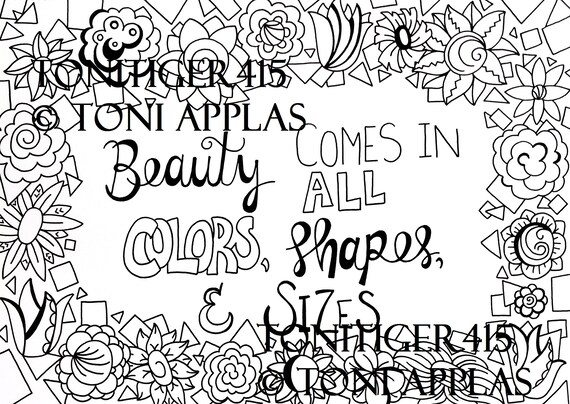 TONITIGER415
© TONI APPLAS
Beauty COMES IN
ALL
COLORS, Shapes,
& SIZES
TONITIGER415
© TONI APPLAS